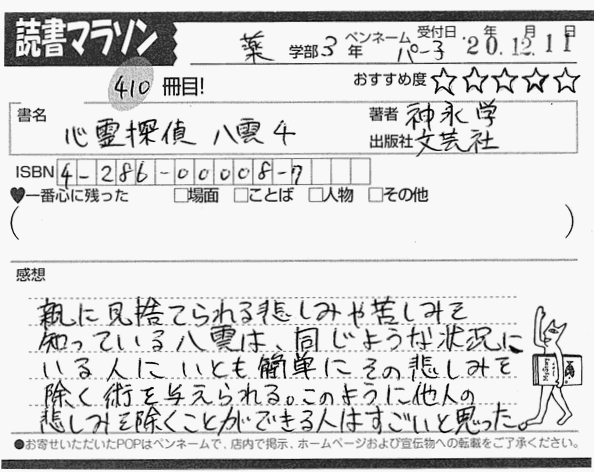 読書マラソン
薬 学部 3 年 ペンネーム パー子 受付日 '20年12月11日
410 冊目! おすすめ度 ☆☆☆☆☆
書名 心霊探偵 八雲4
著者 神永学
出版社 文芸社
ISBN 4-286-00008-7
♥一番心に残った □場面 □ことば □人物 □その他
( )
感想
親に見捨てられる悲しみや苦しみを
知っている八雲は、同じような状況に
いる人に いとも簡単に その悲しみを
除く術を与えられる。このように他人の
悲しみを除くことができる人はすごいと思った。
●お寄せいただいたPOPはペンネームで、店内で掲示、ホームページおよび宣伝物への転載をご了承ください。